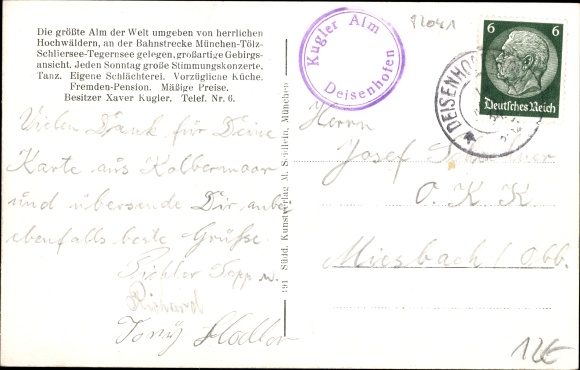 Die größte Alm der Welt umgeben von herrlichen
Hochwäldern, an der Bahnstrecke München-Tölz-
Schliersee-Tegernsee gelegen, großartige Gebirgs-
ansicht. Jeden Sonntag große Stimmungskonzerte.
Tanz. Eigene Schlächterei. Vorzügliche Küche.
Fremden-Pension. Mäßige Preise.
Besitzer Xaver Kugler. Telef. Nr. 6.
Vielen Dank für Deine
Karte aus Kolbermoor
und übersende Dir anbei
ebenfalls beste Grüße.
Pichler Sepp u.
Richard
Tony
191 Südd. Kunstverlag M. Seidlein, München
Kugler Alm
Deisenhofen
82041
6 6
Deutsches Reich
DEISENHO
Herrn
Josef
O. K. K.
Miesbach / Obb.
12€